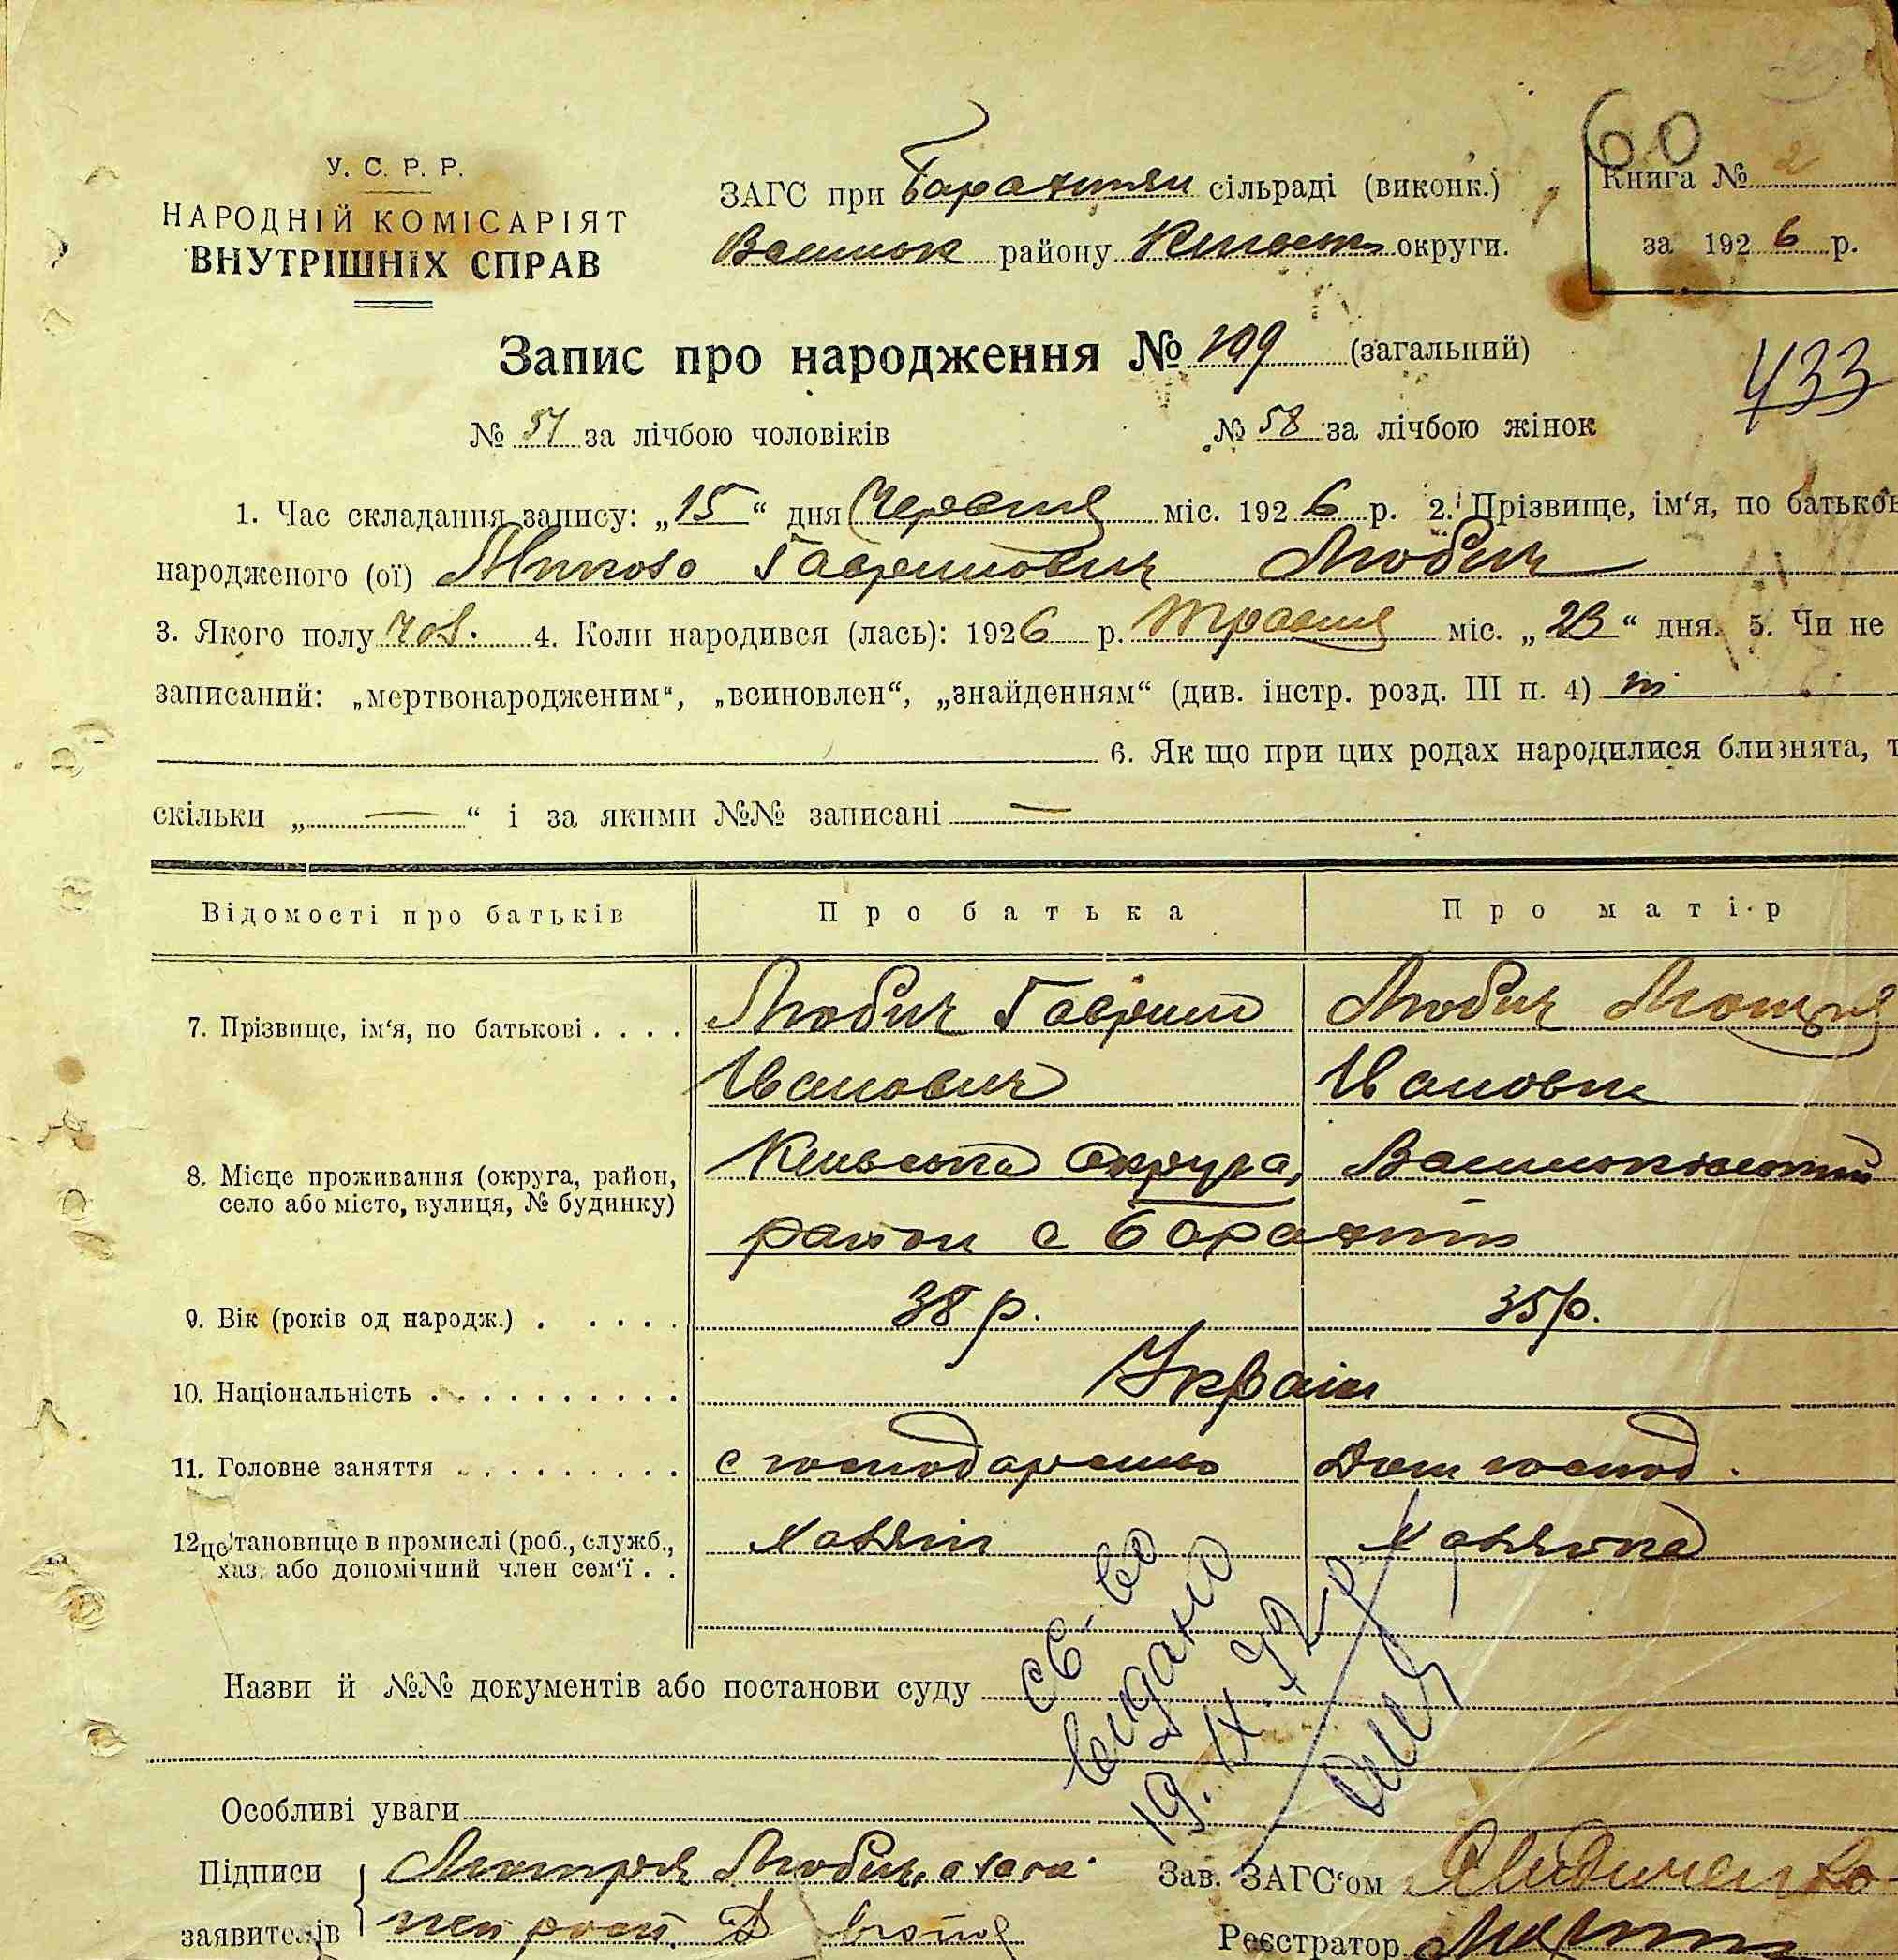 60
У. С. Р. Р.
НАРОДНІЙ КОМІСАРІЯТ
ВНУТРІШНІХ СПРАВ
ЗАГС при Барахтян сільраді (виконк.)
Васильк району Київськ округи.
Книга № 2
за 1926 р.
Запис про народження № 109 (загальний)
433
№ 51 за лічбою чоловіків
№ 58 за лічбою жінок
1. Час складання запису: „15“ дня Червня міс. 1926 р. 2. Прізвище, ім‘я, по батьков
народженого (ої) Микола Гаврилович Любич
3. Якого полу чол. 4. Коли народився (лась): 1926 р. Травня міс. „23“ дня. 5. Чи не
записаний: „мертвонародженим“, „всиновлен“, „знайденням“ (див. інстр. розд. III п. 4) ні
6. Як що при цих родах народилися близнята, т
скільки „—“ і за якими №№ записані —
Відомості про батьків
Про батька
Про матір
7. Прізвище, ім‘я, по батькові . . . .
Любич Гаврило
Іванович
Любич Мотря
Івановна
8. Місце проживання (округа, район,
село або місто, вулиця, № будинку)
Київська округа, Васильківський
район с Барахти
9. Вік (років од народж.) . . . . .
38 р.
35 р.
10. Національність . . . . . . . . . .
Україн
11. Головне заняття . . . . . . . . .
с господарство
Дом господ.
12. Становище в промислі (роб., служб.,
хаз. або допомічний член сем‘ї . .
хазяїн
хазяйка
Назви й №№ документів або постанови суду
св-во
видано
Особливі уваги
Підписи
заявителів
Мотря Любич, а за
Зав. ЗАГС‘ом
Реєстратор